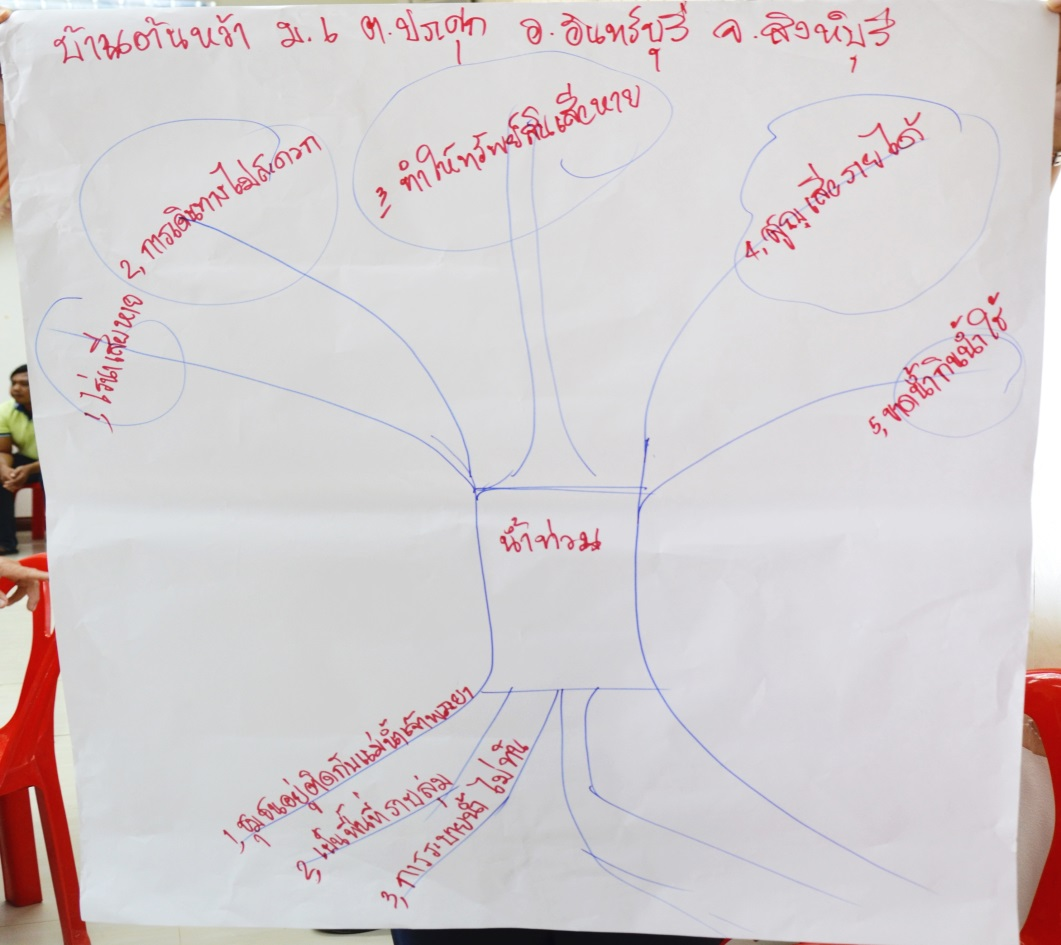 บ้านต้นหว้า ม.๖ ต.ประศุก อ.อินทร์บุรี จ.สิงห์บุรี
1, ไร่นาเสียหาย
2, การเดินทางไม่สะดวก
3, ทำให้ทรัพย์สินเสียหาย
4, สูญเสียรายได้
5, ขาดน้ำกินน้ำใช้
น้ำท่วม
1, ชุมชนอยู่ติดกับแม่น้ำเจ้าพระยา
2, เป็นพื้นที่ราบลุ่ม
3, การระบายน้ำไม่ทัน